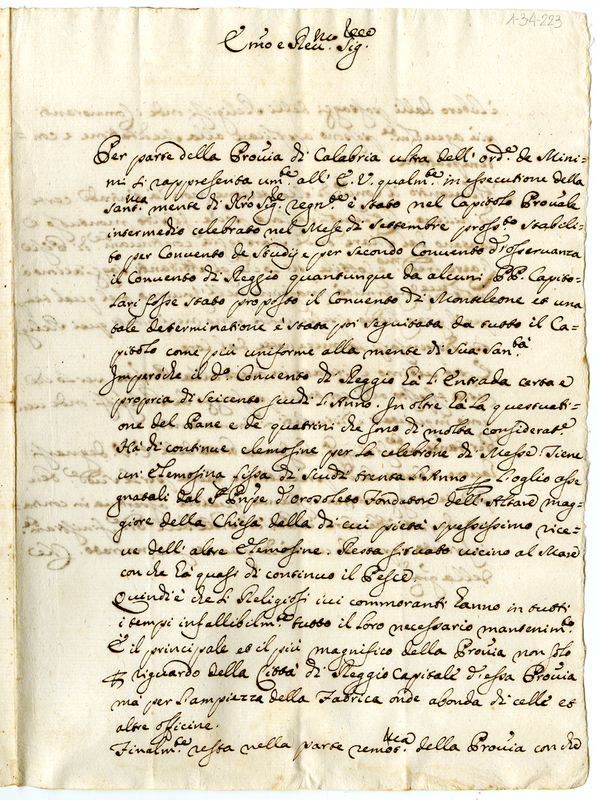 1-34-223
Emo e Reu.mo Sig.
Per parte della Prouia di Calabria ultra dell' ord.e de Mini=
mi si rappresenta um.te all' E. V. qualm.te in essecutione della
Sant.ma mente di Nro Sig.re regn.te è stato nel Capitolo Prouale
intermedio celebrato nel Mese di Settembre pross.to stabili=
to per Conuento de Studij e per secondo Conuento d'osseruanza
il Conuento di Reggio quantunque da alcuni PP. Capito=
lari fosse stato proposto il Conuento di Monteleone et una
tale determinatione è stata poi seguitata da tutto il Ca=
pitolo come più uniforme alla mente di Sua San.tà
Imperoche il d.o Conuento di Reggio hà L'Entrada certa e
propria di seicento scudi L'Anno. In oltre hà La questuati=
one del Pane e de quatrini che sono di molta considerat.e
Hà di continue elemosine per La celebrõne di Messe. Tiene
un' Elemosina fissa di scudi trenta L'Anno p L'oglio asse
gnatali dal S.r Pnpe d'orosoleto Fondatore dell' Altare mag=
giore della Chiesa dalla di cui pietà spessissimo rice=
ue dell' altre Elemosine. Resta situato uicino al Mare
con che hà quasi di continuo il Pesce.
Quindi è che Li Religiosi iui commoranti hanno in tutti
i tempi infallibilm.te tutto il Loro necessario mantenim.to
È il principale et il più magnifico della Prouia non solo
p riguardo della Città di Reggio Capitale d'essa Prouia
ma per L'ampiezza della Fabrica onde abonda di celle et
altre officine.
Finalm.te resta nella parte remot.ma della Prouia con che